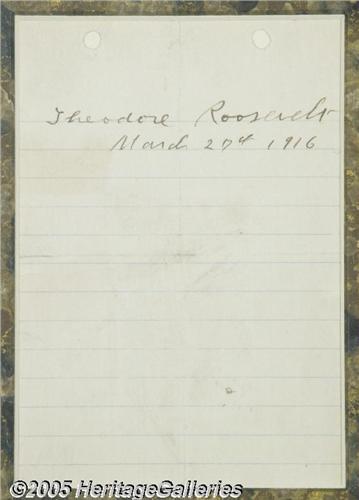 Theodore Roosevelt
March 27th 1916
©2005 HeritageGalleries